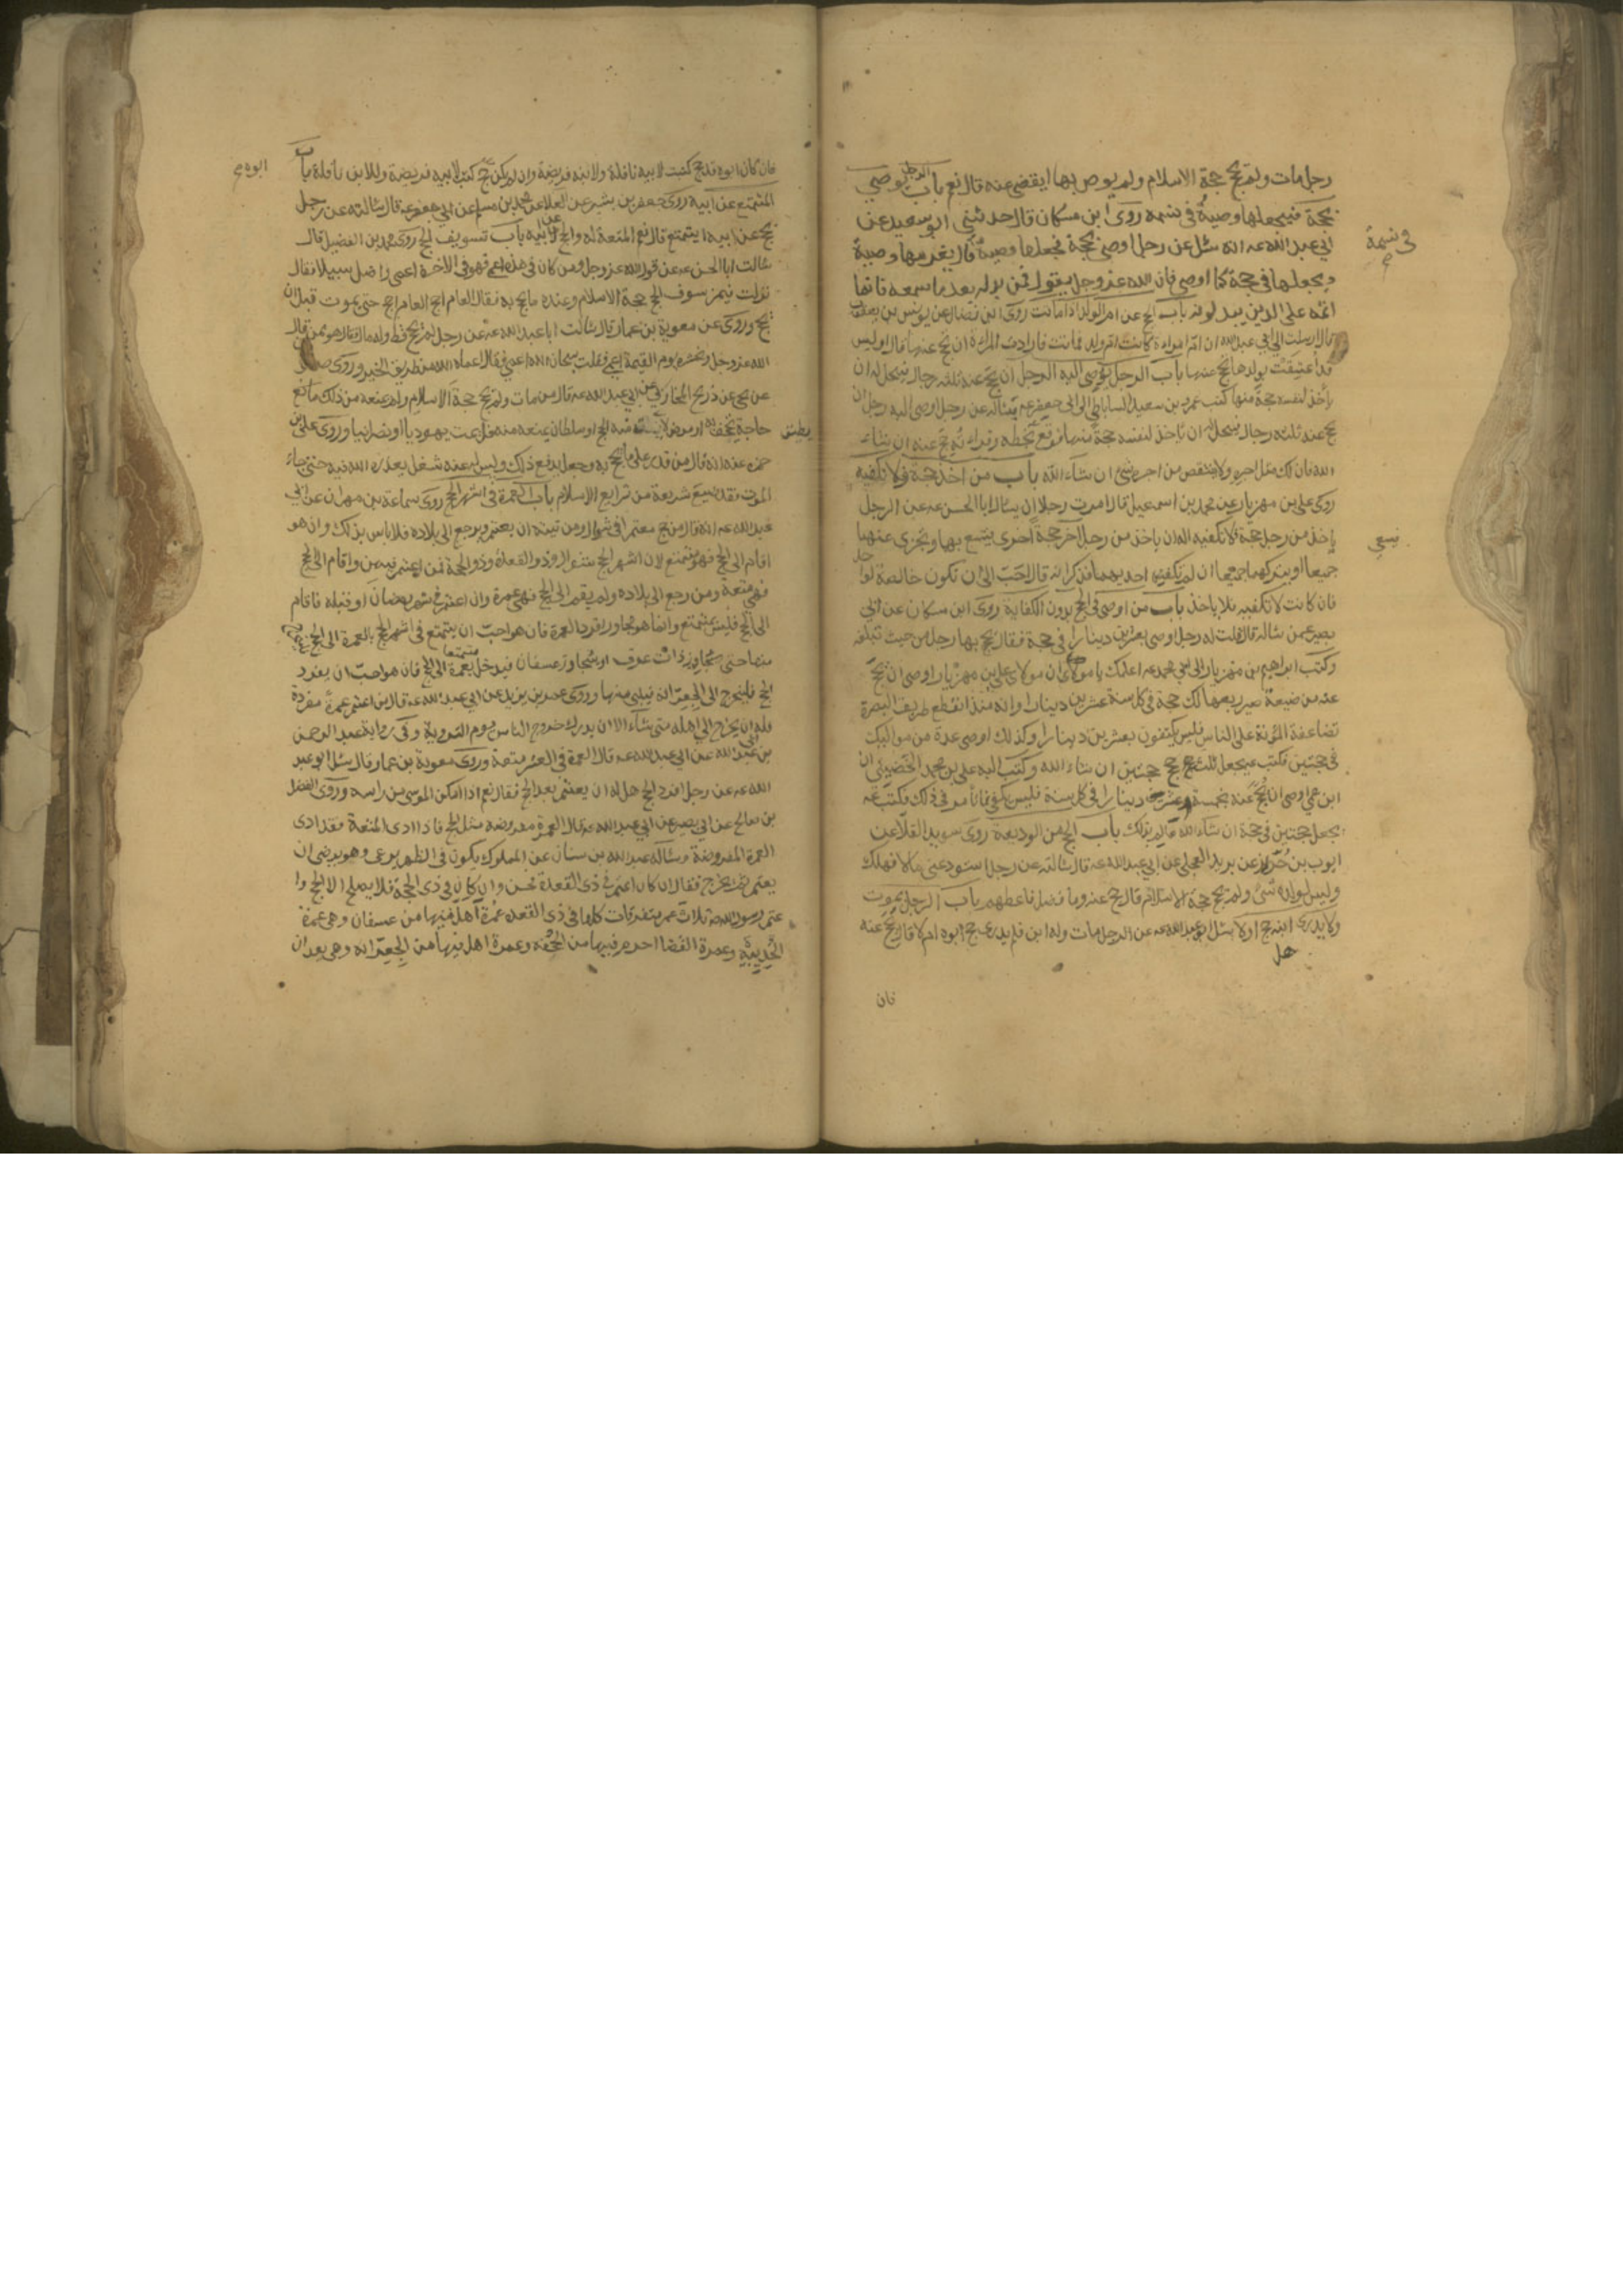 رجل مات ولم يحج حجة الاسلام ولم يوص بها ايقضى عنه قال نعم باب الرجل يوصي
بحجة فيجعلها وصيه في نسمه روى ابن مسكان قال حدثني ابو سعيد عن
ابي عبد الله عه انه سئل عن رجل اوصى بحجة فجعلها وصيه قال يغرمها وصيه
ويجعلها في حجة كما اوصى فان الله عز وجل يقول فمن بدله بعد ما سمعه فانما
اثمه على الذين يبدلونه باب الحج عن ام الولد اذا ماتت روى ابن فضال عن يونس بن يعقوب
قال ارسلت الى ابي عبد الله ان ام امراة كانت ام ولد فماتت فارادت المراة ان تحج عنها قال اوليس
قد اعتقت بولدها تحج عنها باب الرجل يوصى اليه الرجل ان يحج عنه ثلثه رجال فيحل له ان
ياخذ لنفسه حجة منها كتب عمرو بن سعيد الساباطي الى ابي جعفر عه يساله عن رجل اوصى اليه رجل ان
يحج عنه ثلثه رجال فيحل له ان ياخذ لنفسه حجة منها فوقع بخطه وقراته يحج عنه ان شاء
الله فان لك مثل اجره ولا ينقص من اجره شئ ان شاء الله باب من اخذ حجة فلا تكفيه
روى علي بن مهزيار عن محمد بن اسمعيل قال امرت رجلا ان يسال ابا الحسن عه عن الرجل
ياخذ من رجل حجة فلا تكفيه اله ان ياخذ من رجل آخر حجة اخرى يتسع بها وتجزى عنهما
جميعا او يتركهما جميعا ان لم يكفه احديهما فذكر انه قال احب الى ان تكون خالصة لواحد
فان كانت لا تكفيه فلا ياخذ باب من اوصى في الحج بدون الكفاية روى ابن مسكان عن ابي
بصير عمن ساله قال قلت له رجل اوصى بعشرين دينارا في حجة فقال يحج بها رجل من حيث تبلغه
وكتب ابراهيم بن مهزيار الى ابي محمد عه اعلمك يا مولاى ان مولاك علي بن مهزيار اوصى ان يحج
عنه من ضيعة صير ربعها لك حجة في كل سنة عشرين دينارا وانه منذ انقطع طريق البصرة
تضاعفة المؤنة على الناس فليس يكتفون بعشرين دينارا وكذلك اوصى عدة من مواليك
في حجتين فكتب عه يجعل ثلث حجج حجتين ان شاء الله وكتب اليه علي بن محمد الحضيني ان
ابن عمي اوصى ان يحج عنه بخمسة عشر دينارا في كل سنة فليس يكفي فما تامر في ذلك فكتب عه
يجعل حجتين في حجة ان شاء الله عالم بذلك باب الحج من الوديعة روى سويد القلا عن
ايوب بن حر عن بريد العجلي عن ابي عبد الله عه قال سالته عن رجل استودعني مالا فهلك
وليس لولده شئ ولم يحج حجة الاسلام قال حج عنه وما فضل فاعطهم باب الرجل يموت
ولا يدري ابنه حج او لا سئل ابو عبد الله عه عن الرجل مات وله ابن فلم يدر حج ابوه ام لا قال يحج عنه
هل
فان
في نسمة
يسعى
فان كان ابوه قد حج كتبت لابيه نافلة ولابنه فريضة وان لم يكن حج كتب لابيه فريضة وللابن نافلة باب
المتمتع عن ابيه روى جعفر بن بشير عن العلا عن محمد بن مسلم عن ابي جعفر عه قال سالته عن رجل
يحج عن ابيه ايتمتع قال نعم المتعة له والحج عن ابيه باب تسويف الحج روى محمد بن الفضيل قال
سالت ابا الحسن عه عن قول الله عز وجل ومن كان في هذه اعمى فهو في الاخرة اعمى واضل سبيلا فقال
نزلت فيمن سوف الحج حجة الاسلام وعنده ما يحج به فقال العام احج العام احج حتى يموت قبل ان
يحج وروى عن معوية بن عمار قال سالت ابا عبد الله عه عن رجل لم يحج قط وله مال فقال هو ممن قال
الله عز وجل ونحشره يوم القيمة اعمى فقلت سبحان الله اعمى فقال اعماه الله عن طريق الخير وروى صفوان
عن يحيى عن ذريح المحاربي عن ابي عبد الله عه قال من مات ولم يحج حجة الاسلام ولم يمنعه من ذلك مانع
حاجة تجحف به او مرض لا يطيق فيه الحج او سلطان يمنعه منه فليمت يهوديا او نصرانيا وروى علي بن
حمزه عنه انه قال من قدر على ما يحج به وجعل يدفع ذلك وليس له عنه شغل يعذره الله فيه حتى جاء
الموت فقد ضيع شريعة من شرايع الاسلام باب العمرة في اشهر الحج روى سماعة بن مهران عن ابي
عبد الله عه انه قال من حج معتمرا في شوال ومن نيته ان يعتمر ويرجع الى بلاده فلا باس بذلك وان هو
اقام الى الحج فهو متمتع لان اشهر الحج شوال وذو القعدة وذو الحجة فمن اعتمر فيهن واقام الى الحج
فهي متعة ومن رجع الى بلاده ولم يقم الى الحج فهي عمرة وان اعتمر في شهر رمضان او قبله فاقام
الى الحج فليس بمتمتع وانما هو مجاور افرد العمرة فان هو احب ان يتمتع في اشهر الحج بالعمرة الى الحج فليخرج
منها حتى يجاوز ذات عرق او يجاوز عسفان فيدخل متمتعا بعمرة الى الحج فان هو احب ان يفرد
الحج فليخرج الى الجعرانه فيلبي منها وروى عمر بن يزيد عن ابي عبد الله عه قال من اعتمر عمرة مفردة
فله ان يخرج الى اهله متى شاء الا ان يدركه خروج الناس يوم التروية وفي رواية عبد الرحمن
بن ابي عبد الله عن ابي عبد الله عه قال العمرة في العشر متعة وروى معوية بن عمار قال سئل ابو عبد
الله عه عن رجل افرد الحج هل له ان يعتمر بعد الحج فقال نعم اذا امكن الموسى من راسه وروى المفضل
بن صالح عن ابي بصير عن ابي عبد الله عه قال العمرة مفروضه مثل الحج فاذا ادى المتعة فقد ادى
العمرة المفروضة وساله عبد الله بن سنان عن المملوك يكون في الظهر يرعى وهو يرضى ان
يعتمر ثم يخرج فقال ان كان اعتمر في ذى القعدة فحسن وان كان في ذى الحجة فلا يصلح الا الحج وا
عتمر رسول الله ثلاث عمر متفرقات كلها في ذى القعده عمرة اهل فيها من عسفان وهي عمرة
الحديبية وعمرة القضا احرم فيها من الجحفه وعمرة اهل فيها من الجعرانه وهي بعد ان
ابوه
يطيق